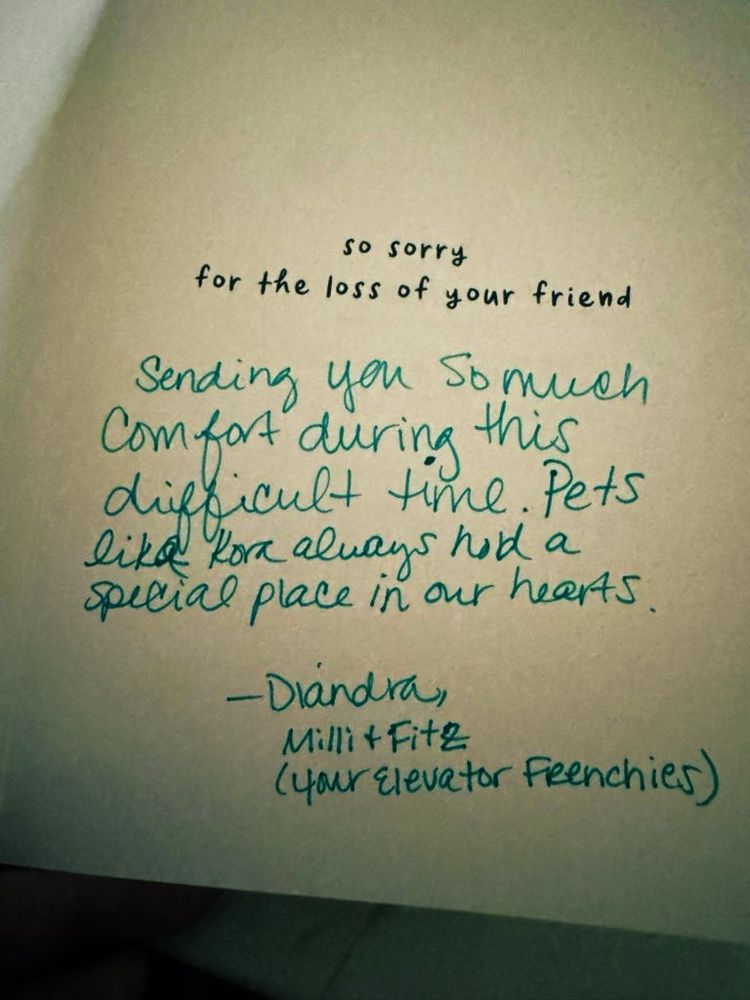 so sorry
for the loss of your friend
Sending you so much
Comfort during this
difficult time. Pets
like Kora always hold a
special place in our hearts.
—Diandra,
Milli + Fitz
(your Elevator Frenchies)